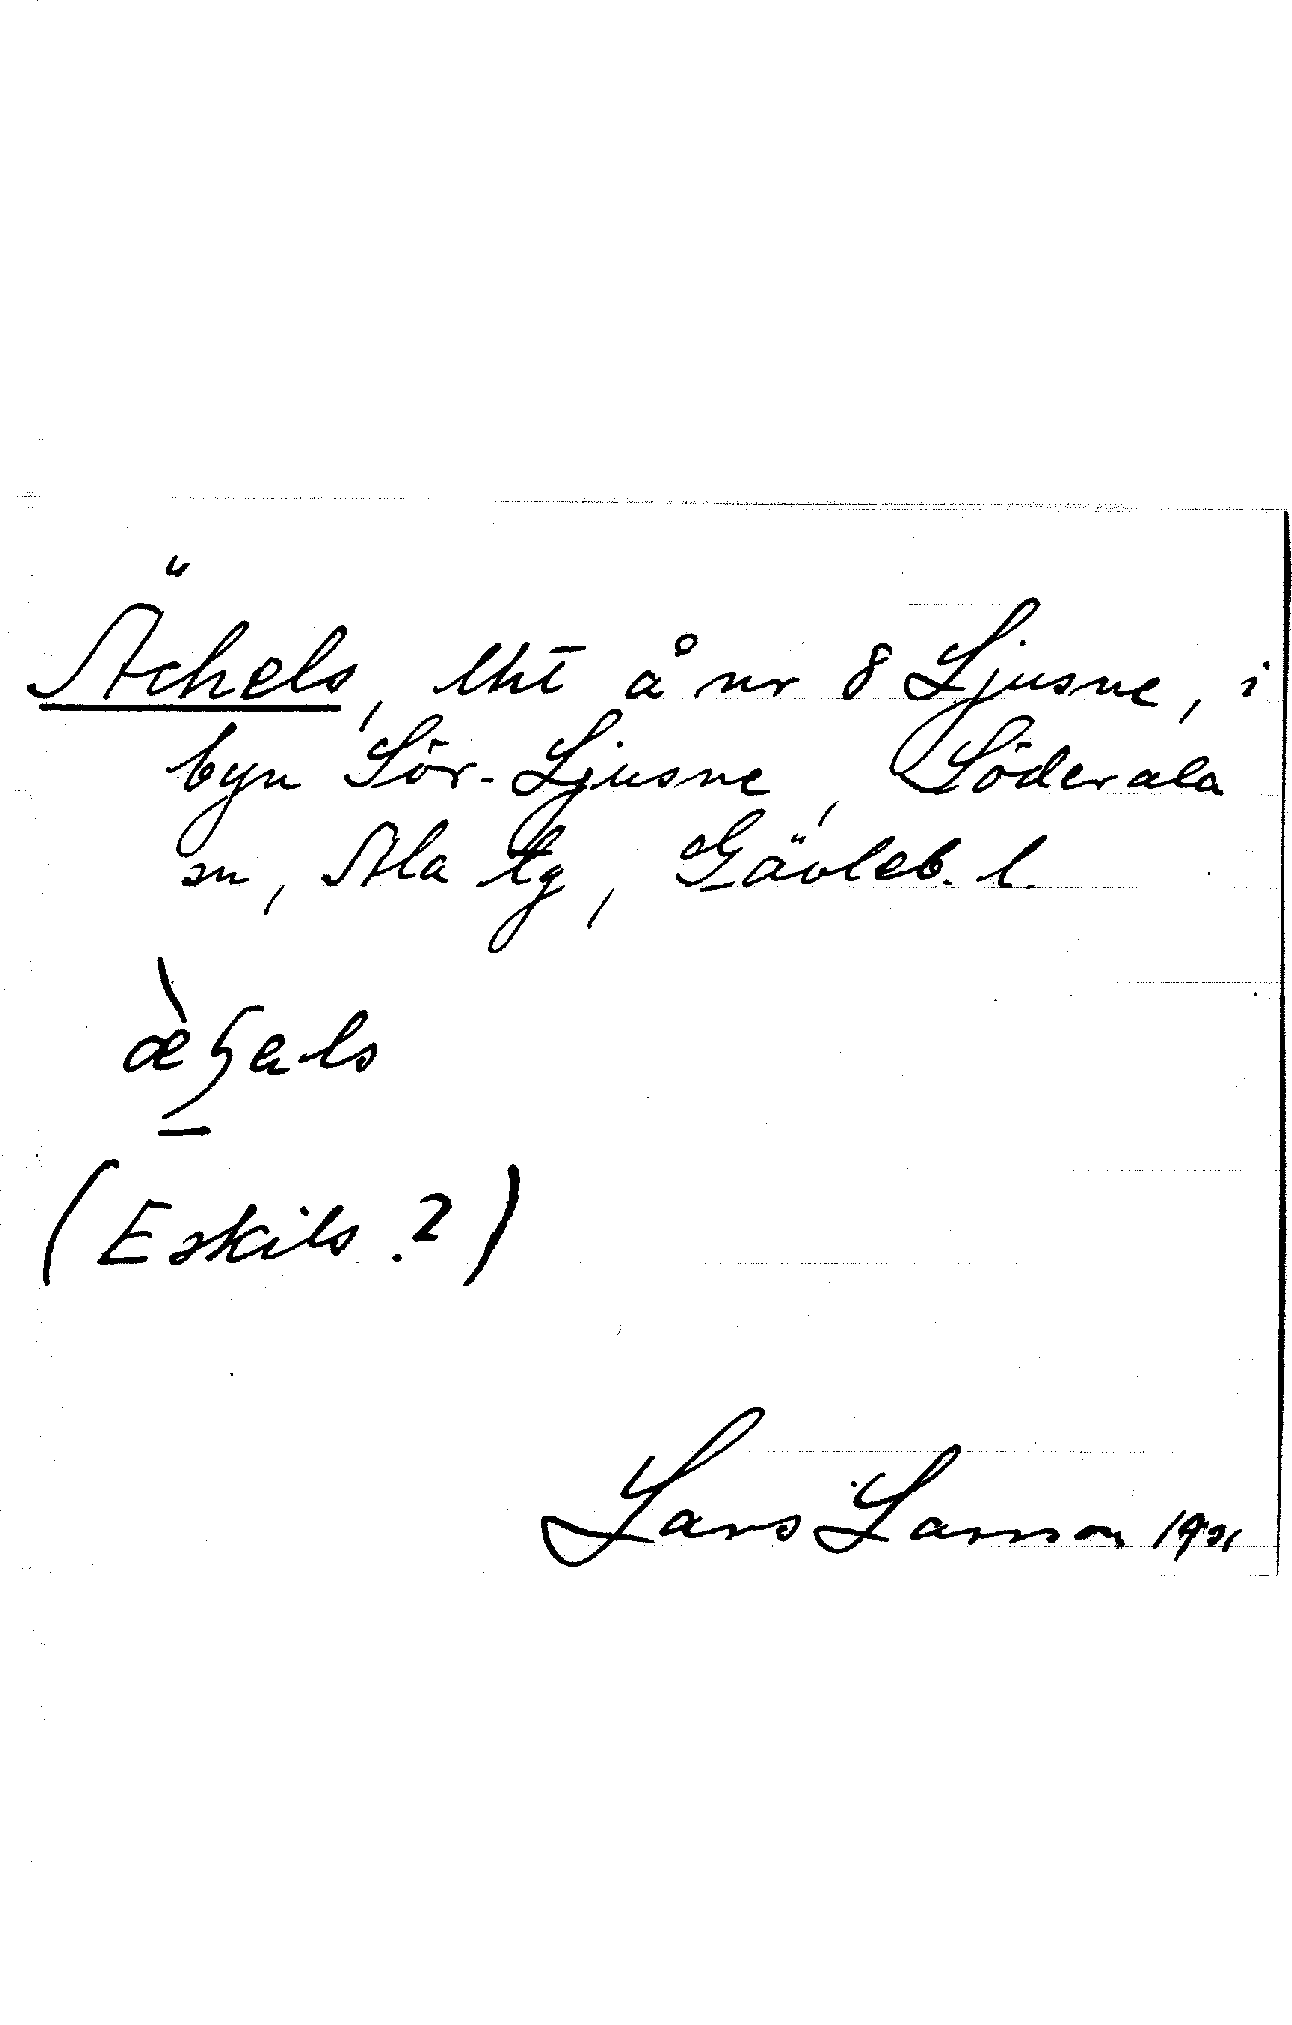 Ächels, lht å nr 8 Ljusne, i
byn Sör-Ljusne, Söderala
sn, Ala tg, Gävleb. l.
(Eskils.?)
Lars Larsson